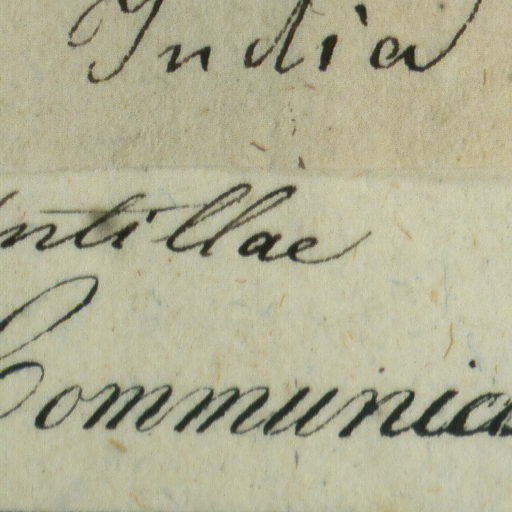 India
ntillae
Communica